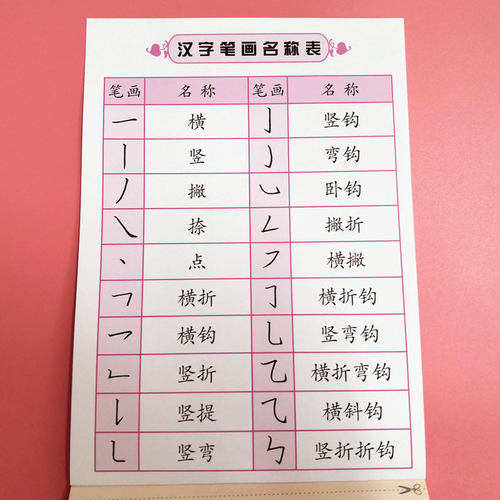 汉字笔画名称表
笔画 名称 笔画 名称
㇐ 横 亅 竖钩
丨 竖 ㇁ 弯钩
丿 撇 ㇃ 卧钩
㇏ 捺 ㇜ 撇折
丶 点 ㇇ 横撇
𠃍 横折 𠃌 横折钩
乛 横钩 乚 竖弯钩
𠃊 竖折 乙 横折弯钩
𠄌 竖提 ⺄ 横斜钩
㇄ 竖弯 ㇉ 竖折折钩